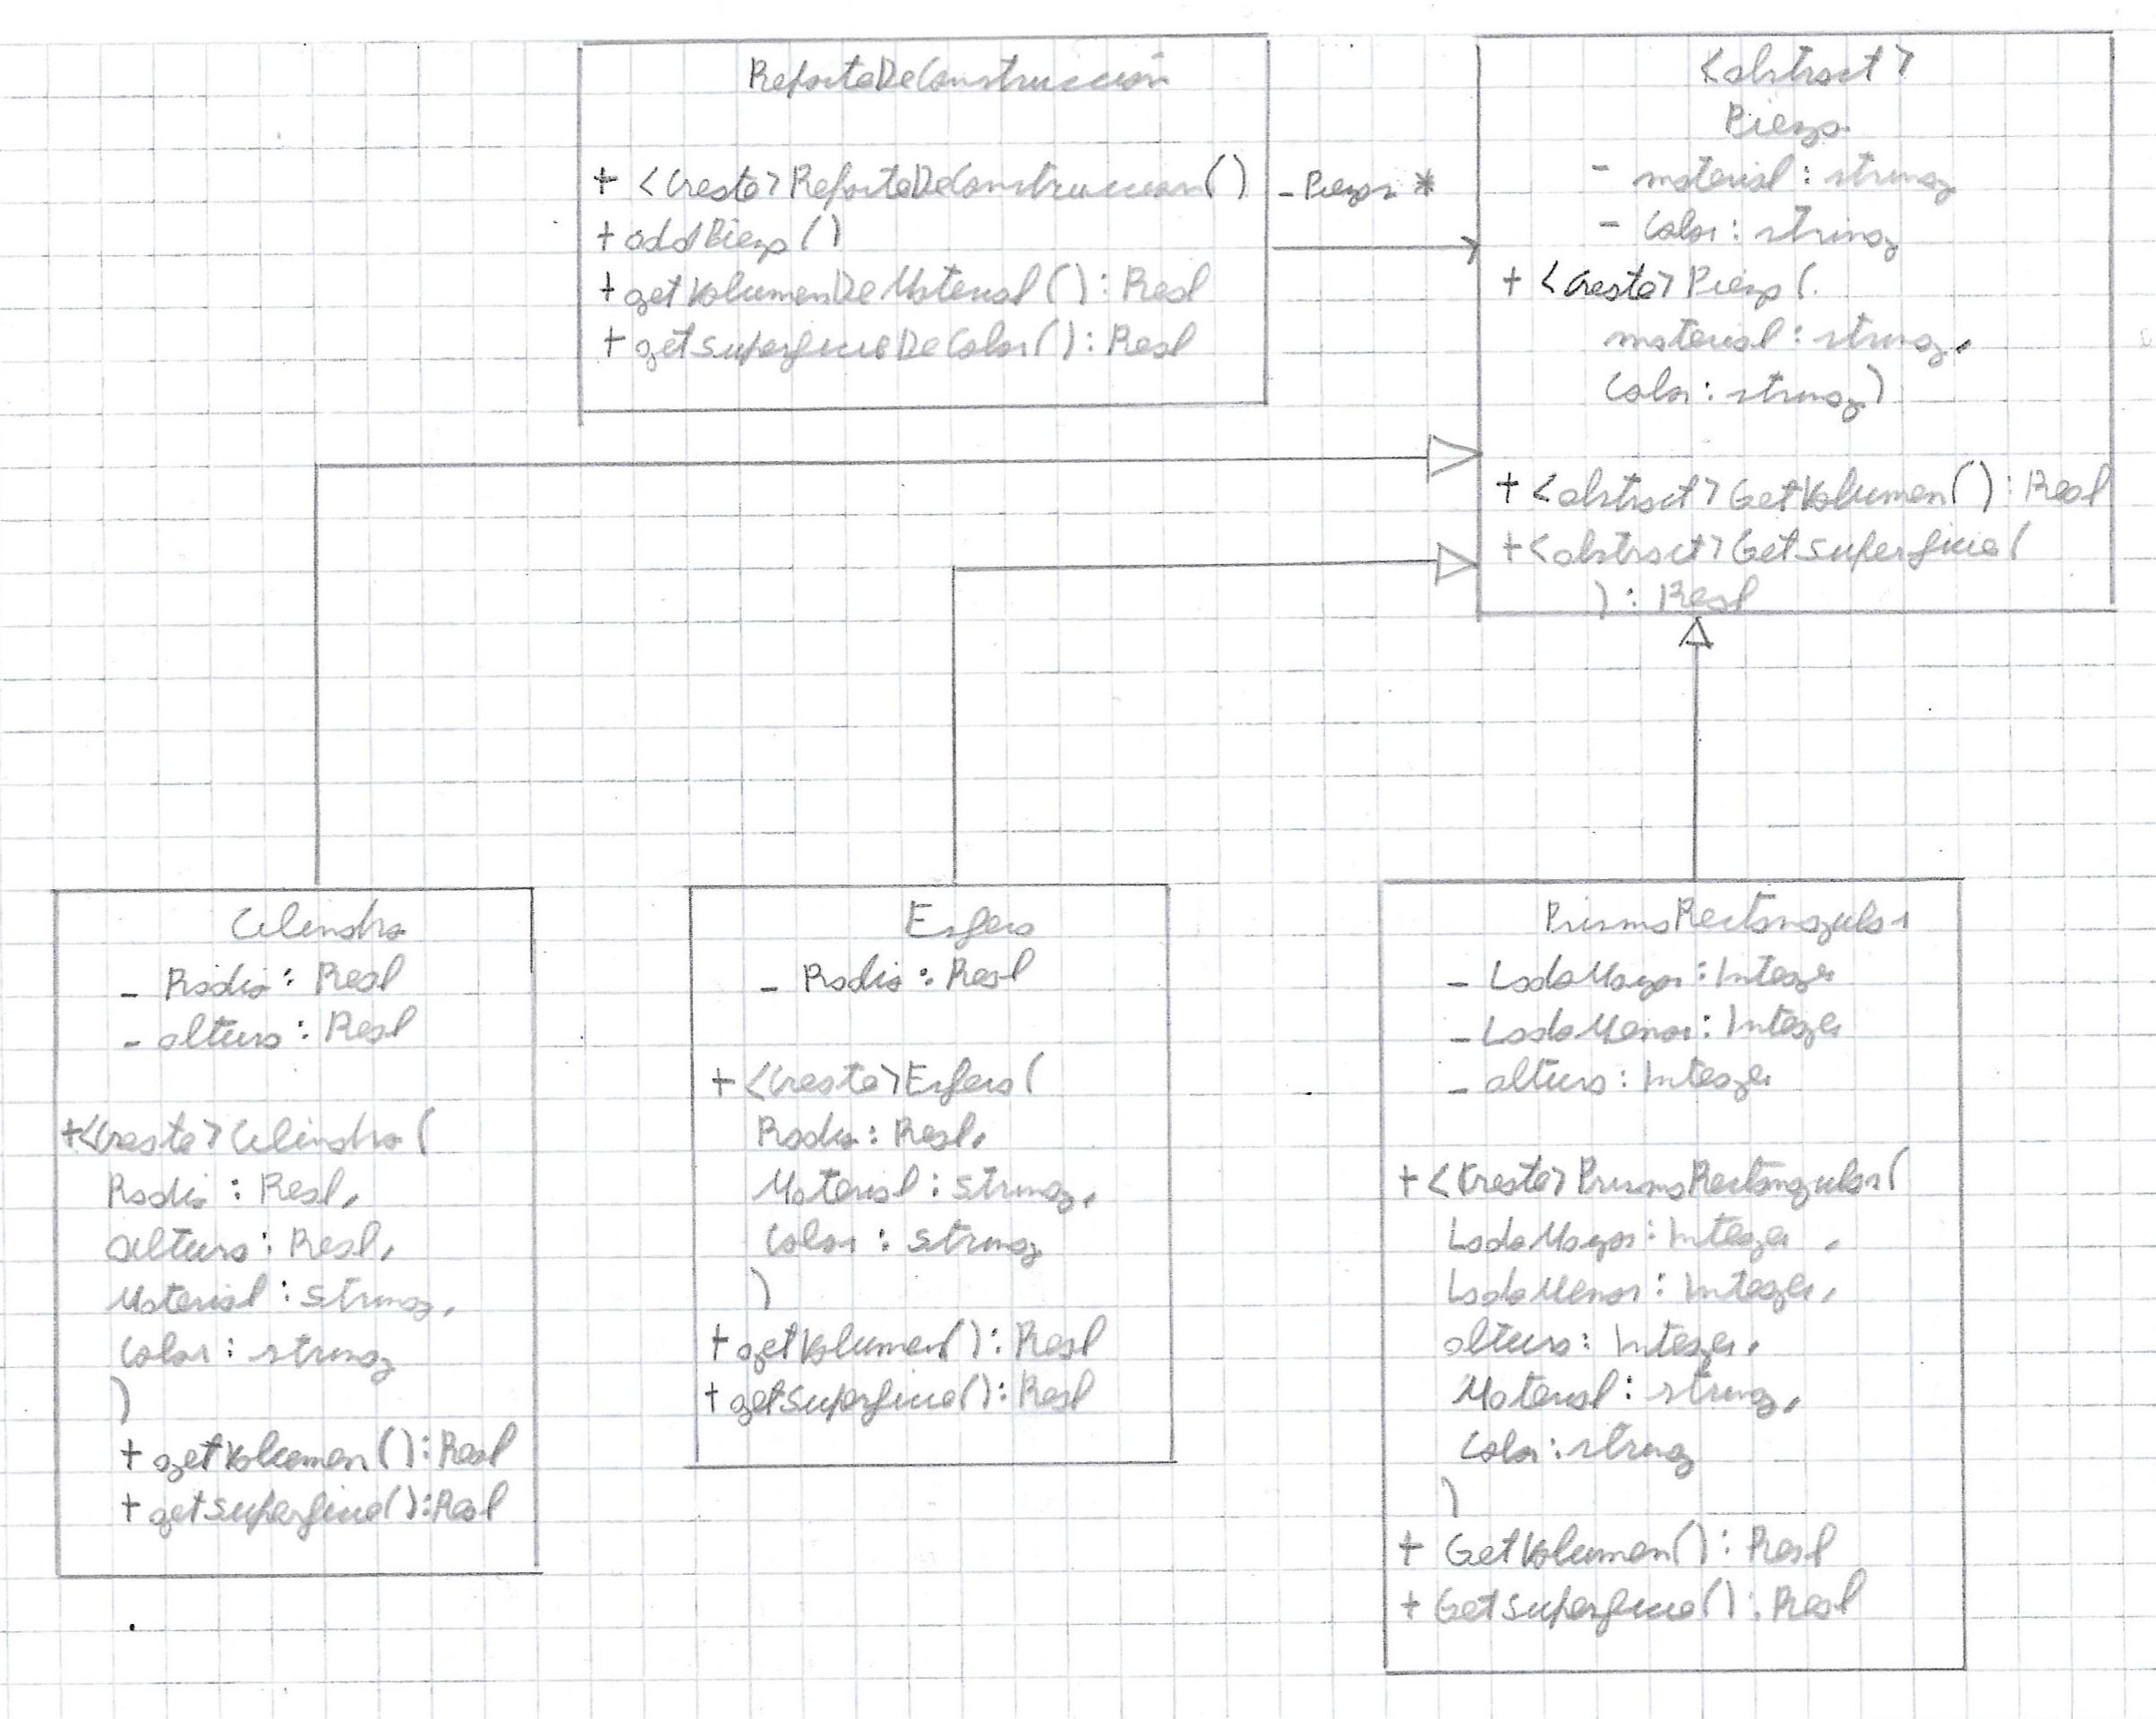 ReporteDeConstrucción
+ <create> ReporteDeConstruccion()
+ addPieza()
+ getVolumenDeMaterial(): Real
+ getSuperficieDeColor(): Real
- Piezas *
<abstract>
Pieza
- material: string
- Color: string
+ <create> Pieza(
material: string,
Color: string)
+ <abstract> GetVolumen(): Real
+ <abstract> GetSuperficie(
): Real
Cilindro
- Radio: Real
- altura: Real
+ <create> Cilindro(
Radio: Real,
altura: Real,
Material: string,
Color: string
)
+ getVolumen(): Real
+ getSuperficie(): Real
Esfera
- Radio: Real
+ <create> Esfera(
Radio: Real,
Material: string,
Color: string
)
+ getVolumen(): Real
+ getSuperficie(): Real
PrismaRectangular
- LadoMayor: Integer
- LadoMenor: Integer
- altura: Integer
+ <Create> PrismaRectangular(
LadoMayor: Integer,
LadoMenor: Integer,
altura: Integer,
Material: string,
Color: string
)
+ GetVolumen(): Real
+ GetSuperficie(): Real